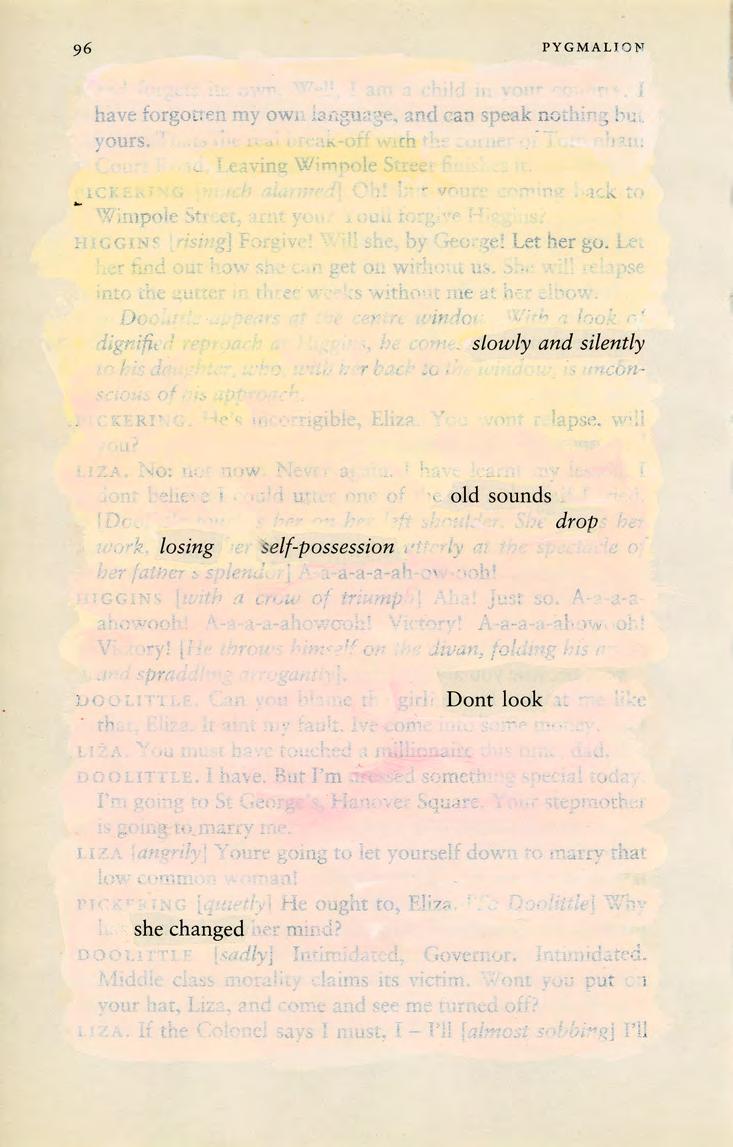 96 PYGMALION
and forgets its own. Well, I am a child in your country. I
have forgotten my own language, and can speak nothing but
yours. Thats the real break-off with the corner of Tottenham
Court Road. Leaving Wimpole Street finishes it.
PICKERING [much alarmed] Oh! but youre coming back to
Wimpole Street, arnt you? Youll forgive Higgins?
HIGGINS [rising] Forgive! Will she, by George! Let her go. Let
her find out how she can get on without us. She will relapse
into the gutter in three weeks without me at her elbow.
Doolittle appears at the centre window. With a look of
dignified reproach at Higgins, he comes slowly and silently
to his daughter, who, with her back to the window, is uncon-
scious of his approach.
PICKERING. He's incorrigible, Eliza. You wont relapse, will
you?
LIZA. No: not now. Never again. I have learnt my lesson. I
dont believe I could utter one of the old sounds if I tried.
[Doolittle touches her on her left shoulder. She drops her
work, losing her self-possession utterly at the spectacle of
her father's splendor] A-a-a-a-a-ah-ow-ooh!
HIGGINS [with a crow of triumph] Aha! Just so. A-a-a-a-
ahowooh! A-a-a-a-ahowooh! Victory! A-a-a-a-ahowooh!
Victory! [He throws himself on the divan, folding his arms,
and spraddling arrogantly].
DOOLITTLE. Can you blame the girl? Dont look at me like
that, Eliza. It aint my fault. Ive come into some money.
LIZA. You must have touched a millionaire this time, dad.
DOOLITTLE. I have. But I'm dressed something special today.
I'm going to St George's, Hanover Square. Your stepmother
is going to marry me.
LIZA [angrily] Youre going to let yourself down to marry that
low common woman!
PICKERING [quietly] He ought to, Eliza. [To Doolittle] Why
has she changed her mind?
DOOLITTLE [sadly] Intimidated, Governor. Intimidated.
Middle class morality claims its victim. Wont you put on
your hat, Liza, and come and see me turned off?
LIZA. If the Colonel says I must, I – I'll [almost sobbing] I'll